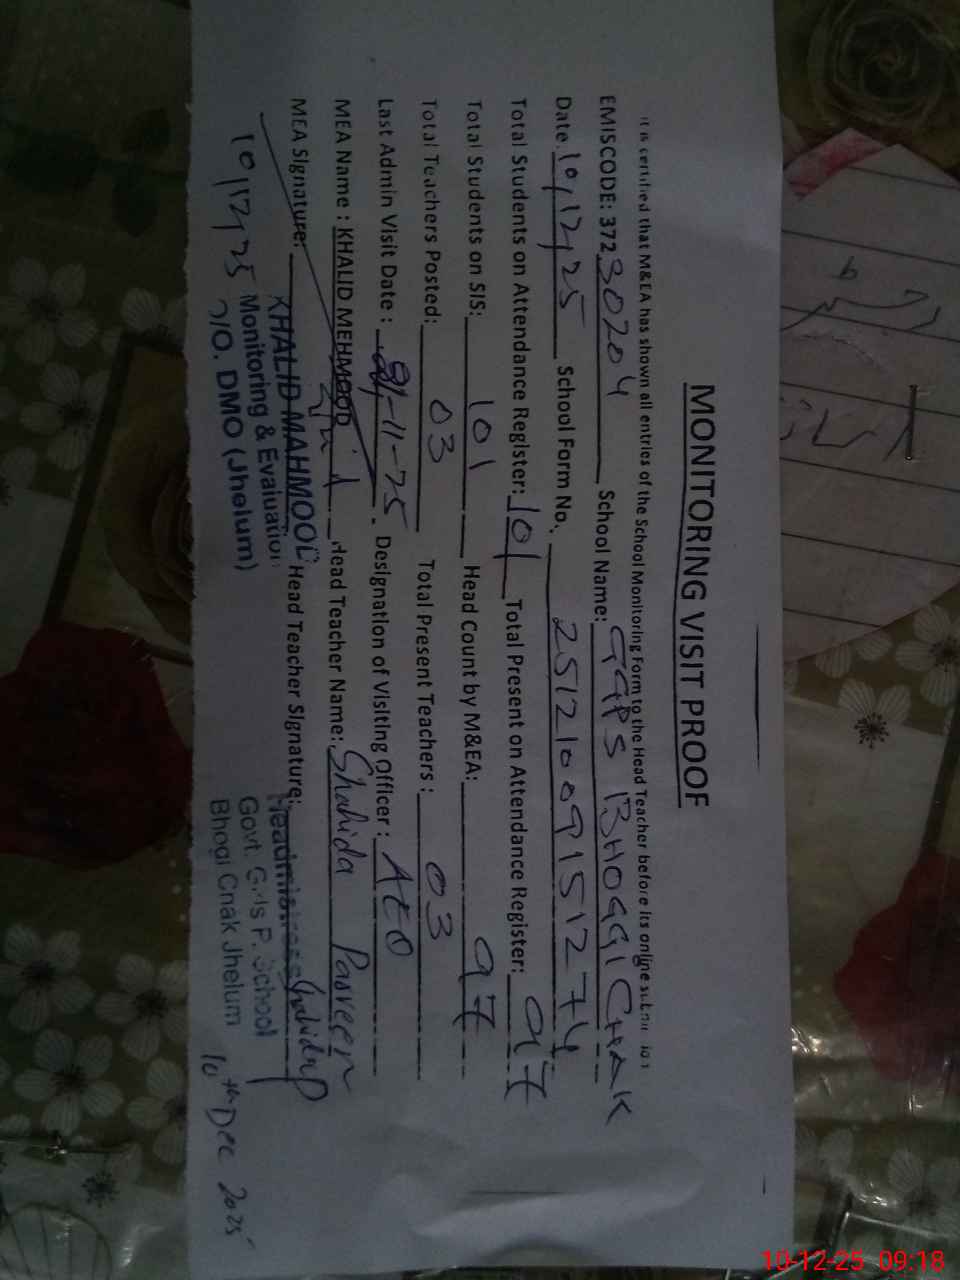 MONITORING VISIT PROOF
It is certified that M&EA has shown all entries of the School Monitoring Form to the Head Teacher before its online
EMISCODE: 37230204 School Name: GGPS BHOGGI CHAK
Date 10/12/25 School Form No. 25121009151274
Total Students on Attendance Register: 101 Total Present on Attendance Register: 97
Total Students on SIS: 101 Head Count by M&EA: 97
Total Teachers Posted: 03 Total Present Teachers: 03
Last Admin Visit Date: -11-25. Designation of Visiting Officer: AEO
MEA Name: KHALID MEHMOOD Head Teacher Name: Shahida Parveen
MEA Signature: Head Teacher Signature: ShahidaP
10/12/25
KHALID MAHMOOD
Monitoring & Evaluation
O/O. DMO (Jhelum)
Headmistress
Govt. Girls P. School
Bhogi Chak Jhelum
10th Dec 2025
10-12-25 09:18